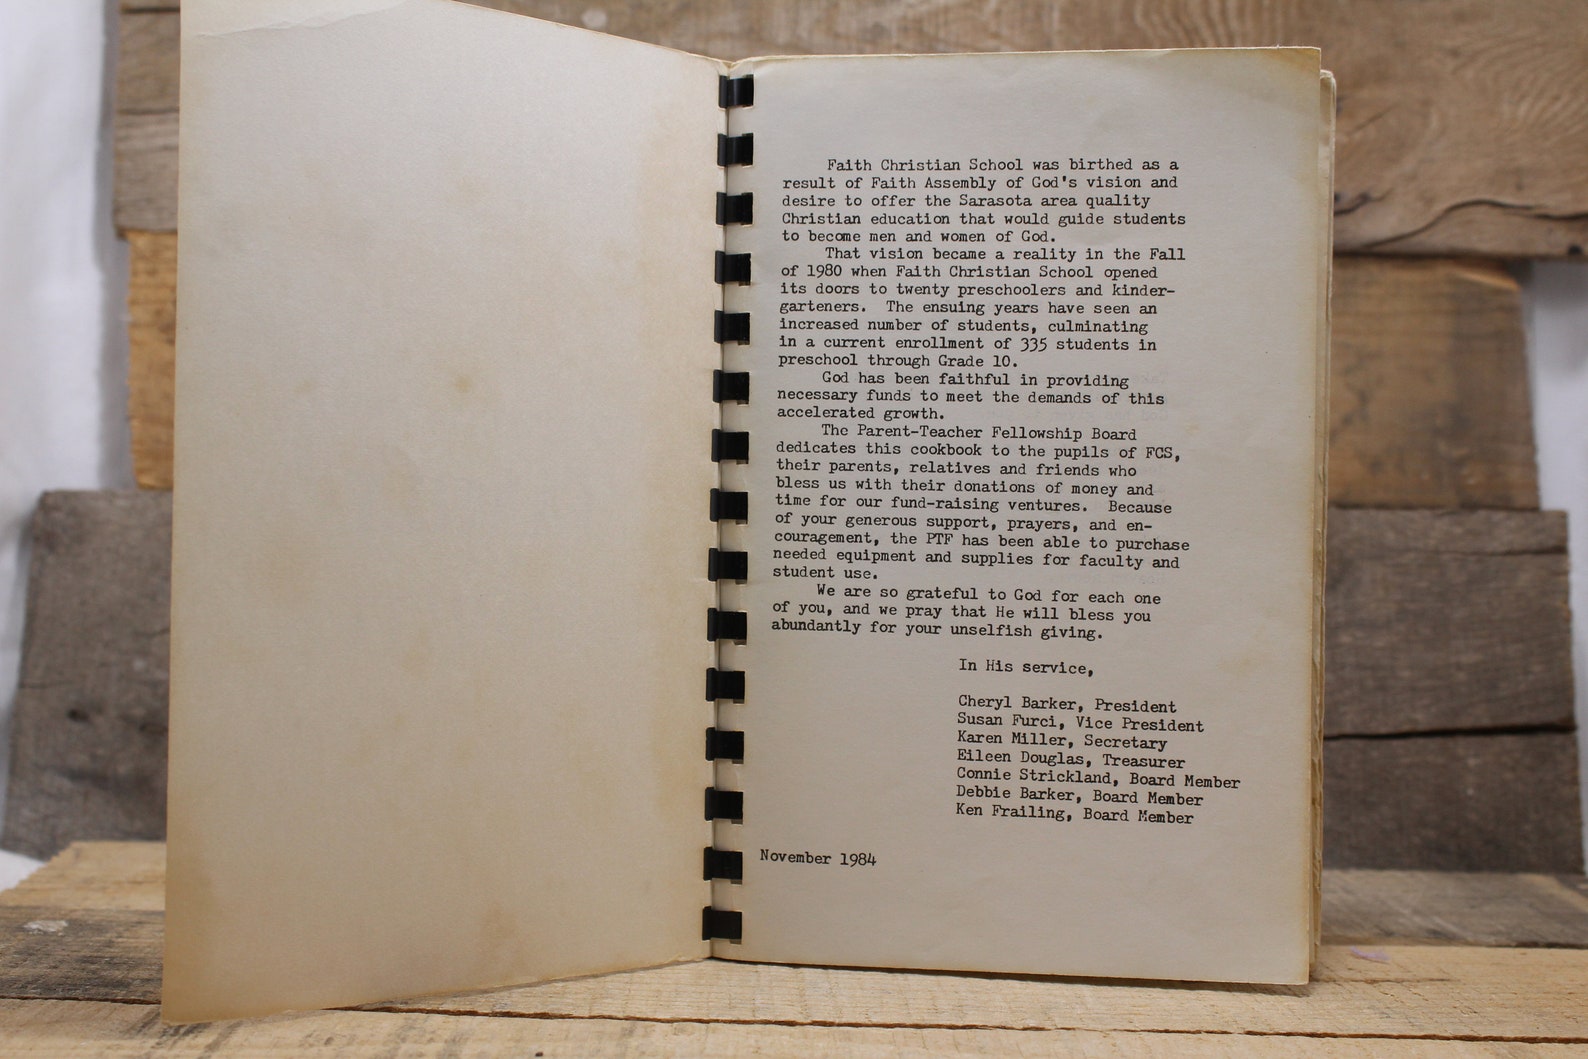 Faith Christian School was birthed as a
result of Faith Assembly of God's vision and
desire to offer the Sarasota area quality
Christian education that would guide students
to become men and women of God.
That vision became a reality in the Fall
of 1980 when Faith Christian School opened
its doors to twenty preschoolers and kinder-
garteners. The ensuing years have seen an
increased number of students, culminating
in a current enrollment of 335 students in
preschool through Grade 10.
God has been faithful in providing
necessary funds to meet the demands of this
accelerated growth.
The Parent-Teacher Fellowship Board
dedicates this cookbook to the pupils of FCS,
their parents, relatives and friends who
bless us with their donations of money and
time for our fund-raising ventures. Because
of your generous support, prayers, and en-
couragement, the PTF has been able to purchase
needed equipment and supplies for faculty and
student use.
We are so grateful to God for each one
of you, and we pray that He will bless you
abundantly for your unselfish giving.
In His service,
Cheryl Barker, President
Susan Furci, Vice President
Karen Miller, Secretary
Eileen Douglas, Treasurer
Connie Strickland, Board Member
Debbie Barker, Board Member
Ken Frailing, Board Member
November 1984